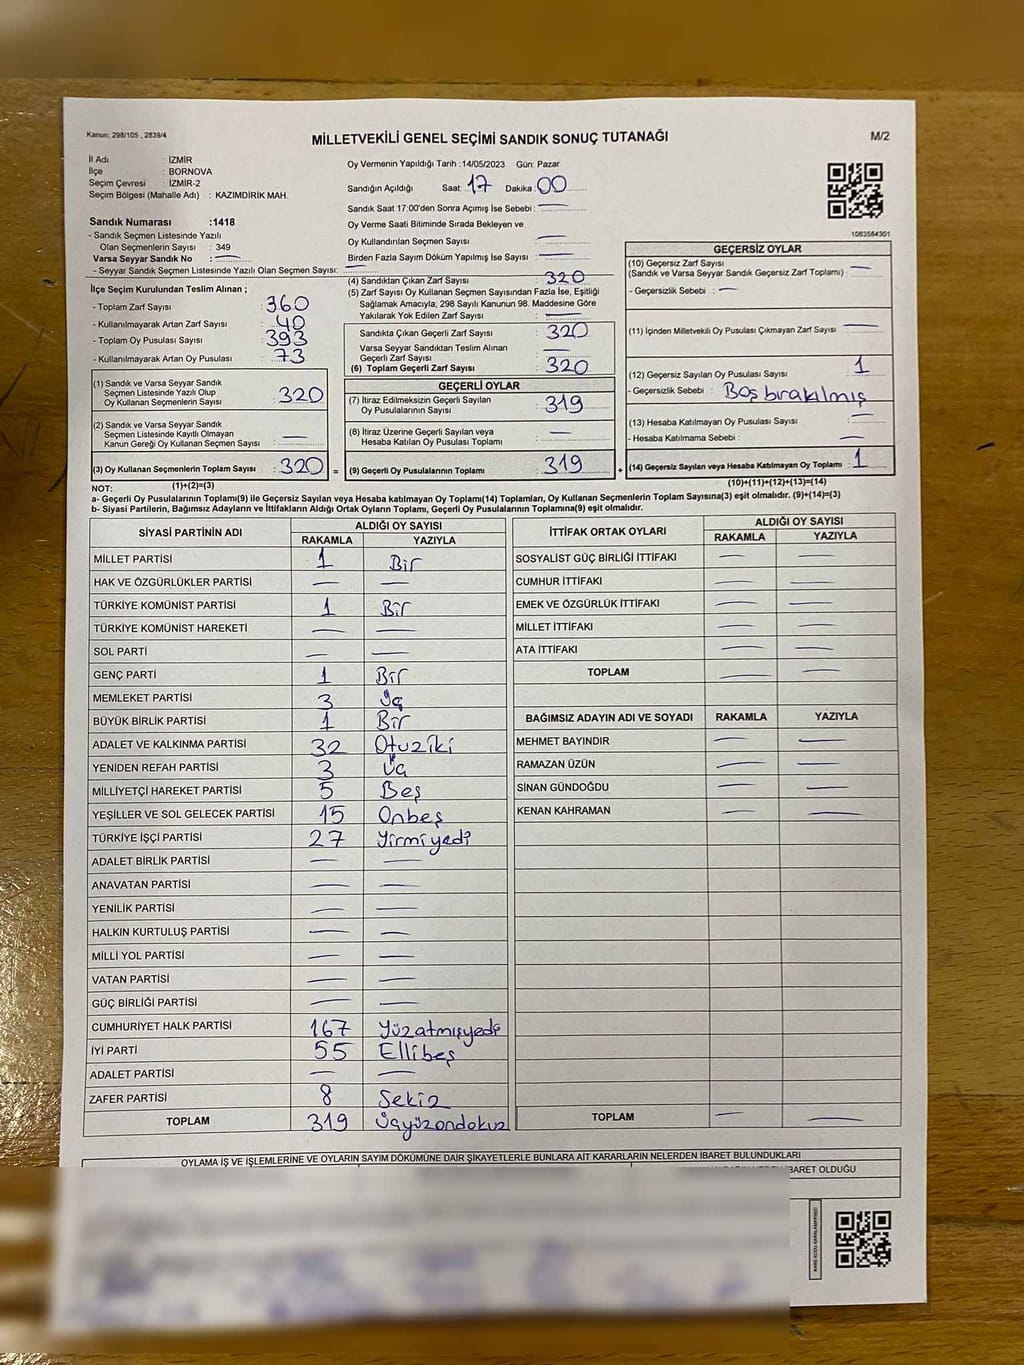 Kanun; 298/105 , 2839/4
MİLLETVEKİLİ GENEL SEÇİMİ SANDIK SONUÇ TUTANAĞI
M/2
İl Adı : İZMİR
İlçe : BORNOVA
Seçim Çevresi : İZMİR-2
Seçim Bölgesi (Mahalle Adı) : KAZIMDİRİK MAH.
Sandık Numarası :1418
- Sandık Seçmen Listesinde Yazılı
Olan Seçmenlerin Sayısı : 349
Varsa Seyyar Sandık No : —
- Seyyar Sandık Seçmen Listesinde Yazılı Olan Seçmen Sayısı: —
Oy Vermenin Yapıldığı Tarih :14/05/2023 Gün: Pazar
Sandığın Açıldığı Saat: 17 Dakika :00
Sandık Saat 17:00'den Sonra Açımış İse Sebebi : —
Oy Verme Saati Bitiminde Sırada Bekleyen ve
Oy Kullandırılan Seçmen Sayısı —
Birden Fazla Sayım Döküm Yapılmış İse Sayısı : —
1083584301
İlçe Seçim Kurulundan Teslim Alınan ;
- Toplam Zarf Sayısı : 360
- Kullanılmayarak Artan Zarf Sayısı : 40
- Toplam Oy Pusulası Sayısı : 393
- Kullanılmayarak Artan Oy Pusulası : 73
(1) Sandık ve Varsa Seyyar Sandık
Seçmen Listesinde Yazılı Olup
Oy Kullanan Seçmenlerin Sayısı : 320
(2) Sandık ve Varsa Seyyar Sandık
Seçmen Listesinde Kayıtlı Olmayan
Kanun Gereği Oy Kullanan Seçmen Sayısı : —
(3) Oy Kullanan Seçmenlerin Toplam Sayısı : 320 =
(1)+(2)=(3)
(4) Sandıktan Çıkan Zarf Sayısı : 320
(5) Zarf Sayısı Oy Kullanan Seçmen Sayısından Fazla İse, Eşitliği
Sağlamak Amacıyla, 298 Sayılı Kanunun 98. Maddesine Göre
Yakılarak Yok Edilen Zarf Sayısı : —
Sandıkta Çıkan Geçerli Zarf Sayısı : 320
Varsa Seyyar Sandıktan Teslim Alınan
Geçerli Zarf Sayısı : —
(6) Toplam Geçerli Zarf Sayısı : 320
GEÇERLİ OYLAR
(7) İtiraz Edilmeksizin Geçerli Sayılan
Oy Pusulalarının Sayısı : 319
(8) İtiraz Üzerine Geçerli Sayılan veya
Hesaba Katılan Oy Pusulası Toplamı : —
(9) Geçerli Oy Pusulalarının Toplamı : 319 +
GEÇERSİZ OYLAR
(10) Geçersiz Zarf Sayısı
(Sandık ve Varsa Seyyar Sandık Geçersiz Zarf Toplamı) : —
- Geçersizlik Sebebi : —
(11) İçinden Milletvekili Oy Pusulası Çıkmayan Zarf Sayısı : —
(12) Geçersiz Sayılan Oy Pusulası Sayısı : 1
- Geçersizlik Sebebi : Boş bırakılmış
(13) Hesaba Katılmayan Oy Pusulası Sayısı : —
- Hesaba Katılmama Sebebi : —
(14) Geçersiz Sayılan veya Hesaba Katılmayan Oy Toplamı : 1
(10)+(11)+(12)+(13)=(14)
NOT:
a- Geçerli Oy Pusulalarının Toplamı(9) ile Geçersiz Sayılan veya Hesaba katılmayan Oy Toplamı(14) Toplamları, Oy Kullanan Seçmenlerin Toplam Sayısına(3) eşit olmalıdır. (9)+(14)=(3)
b- Siyasi Partilerin, Bağımsız Adayların ve İttifakların Aldığı Ortak Oyların Toplamı, Geçerli Oy Pusulalarının Toplamına(9) eşit olmalıdır.
SİYASİ PARTİNİN ADI ALDIĞI OY SAYISI
RAKAMLA YAZIYLA
MİLLET PARTİSİ 1 Bir
HAK VE ÖZGÜRLÜKLER PARTİSİ — —
TÜRKİYE KOMÜNİST PARTİSİ 1 Bir
TÜRKİYE KOMÜNİST HAREKETİ — —
SOL PARTİ — —
GENÇ PARTİ 1 Bir
MEMLEKET PARTİSİ 3 Üç
BÜYÜK BİRLİK PARTİSİ 1 Bir
ADALET VE KALKINMA PARTİSİ 32 Otuziki
YENİDEN REFAH PARTİSİ 3 Üç
MİLLİYETÇİ HAREKET PARTİSİ 5 Beş
YEŞİLLER VE SOL GELECEK PARTİSİ 15 Onbeş
TÜRKİYE İŞÇİ PARTİSİ 27 Yirmiyedi
ADALET BİRLİK PARTİSİ — —
ANAVATAN PARTİSİ — —
YENİLİK PARTİSİ — —
HALKIN KURTULUŞ PARTİSİ — —
MİLLİ YOL PARTİSİ — —
VATAN PARTİSİ — —
GÜÇ BİRLİĞİ PARTİSİ — —
CUMHURİYET HALK PARTİSİ 167 Yüzatmışyedi
İYİ PARTİ 55 Ellibeş
ADALET PARTİSİ — —
ZAFER PARTİSİ 8 Sekiz
TOPLAM 319 Üçyüzondokuz
İTTİFAK ORTAK OYLARI ALDIĞI OY SAYISI
RAKAMLA YAZIYLA
SOSYALİST GÜÇ BİRLİĞİ İTTİFAKI — —
CUMHUR İTTİFAKI — —
EMEK VE ÖZGÜRLÜK İTTİFAKI — —
MİLLET İTTİFAKI — —
ATA İTTİFAKI — —
TOPLAM — —
BAĞIMSIZ ADAYIN ADI VE SOYADI RAKAMLA YAZIYLA
MEHMET BAYINDIR — —
RAMAZAN ÜZÜN — —
SİNAN GÜNDOĞDU — —
KENAN KAHRAMAN — —
TOPLAM — —
OYLAMA İŞ VE İŞLEMLERİNE VE OYLARIN SAYIM DÖKÜMÜNE DAİR ŞİKAYETLERLE BUNLARA AİT KARARLARIN NELERDEN İBARET BULUNDUKLARI
İBARET OLDUĞU